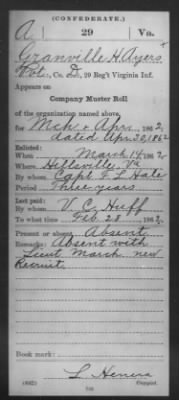 (CONFEDERATE.)
A 29 Va.
Granville H. Ayers
Pvt., Co. D, 29 Reg't Virginia Inf.
Appears on
Company Muster Roll
of the organization named above,
for Mch & Apr, 1862.
dated Apr. 30, 1862
Enlisted:
When March 14, 1862
Where Hillsville, Va.
By whom Capt. F. L. Hale
Period Three years
Last paid:
By whom V. C. Huff
To what time Feb. 28, 1862.
Present or absent Absent
Remarks: Absent with
Lieut March new
Recruit.
Book mark:
(642) Copyist.